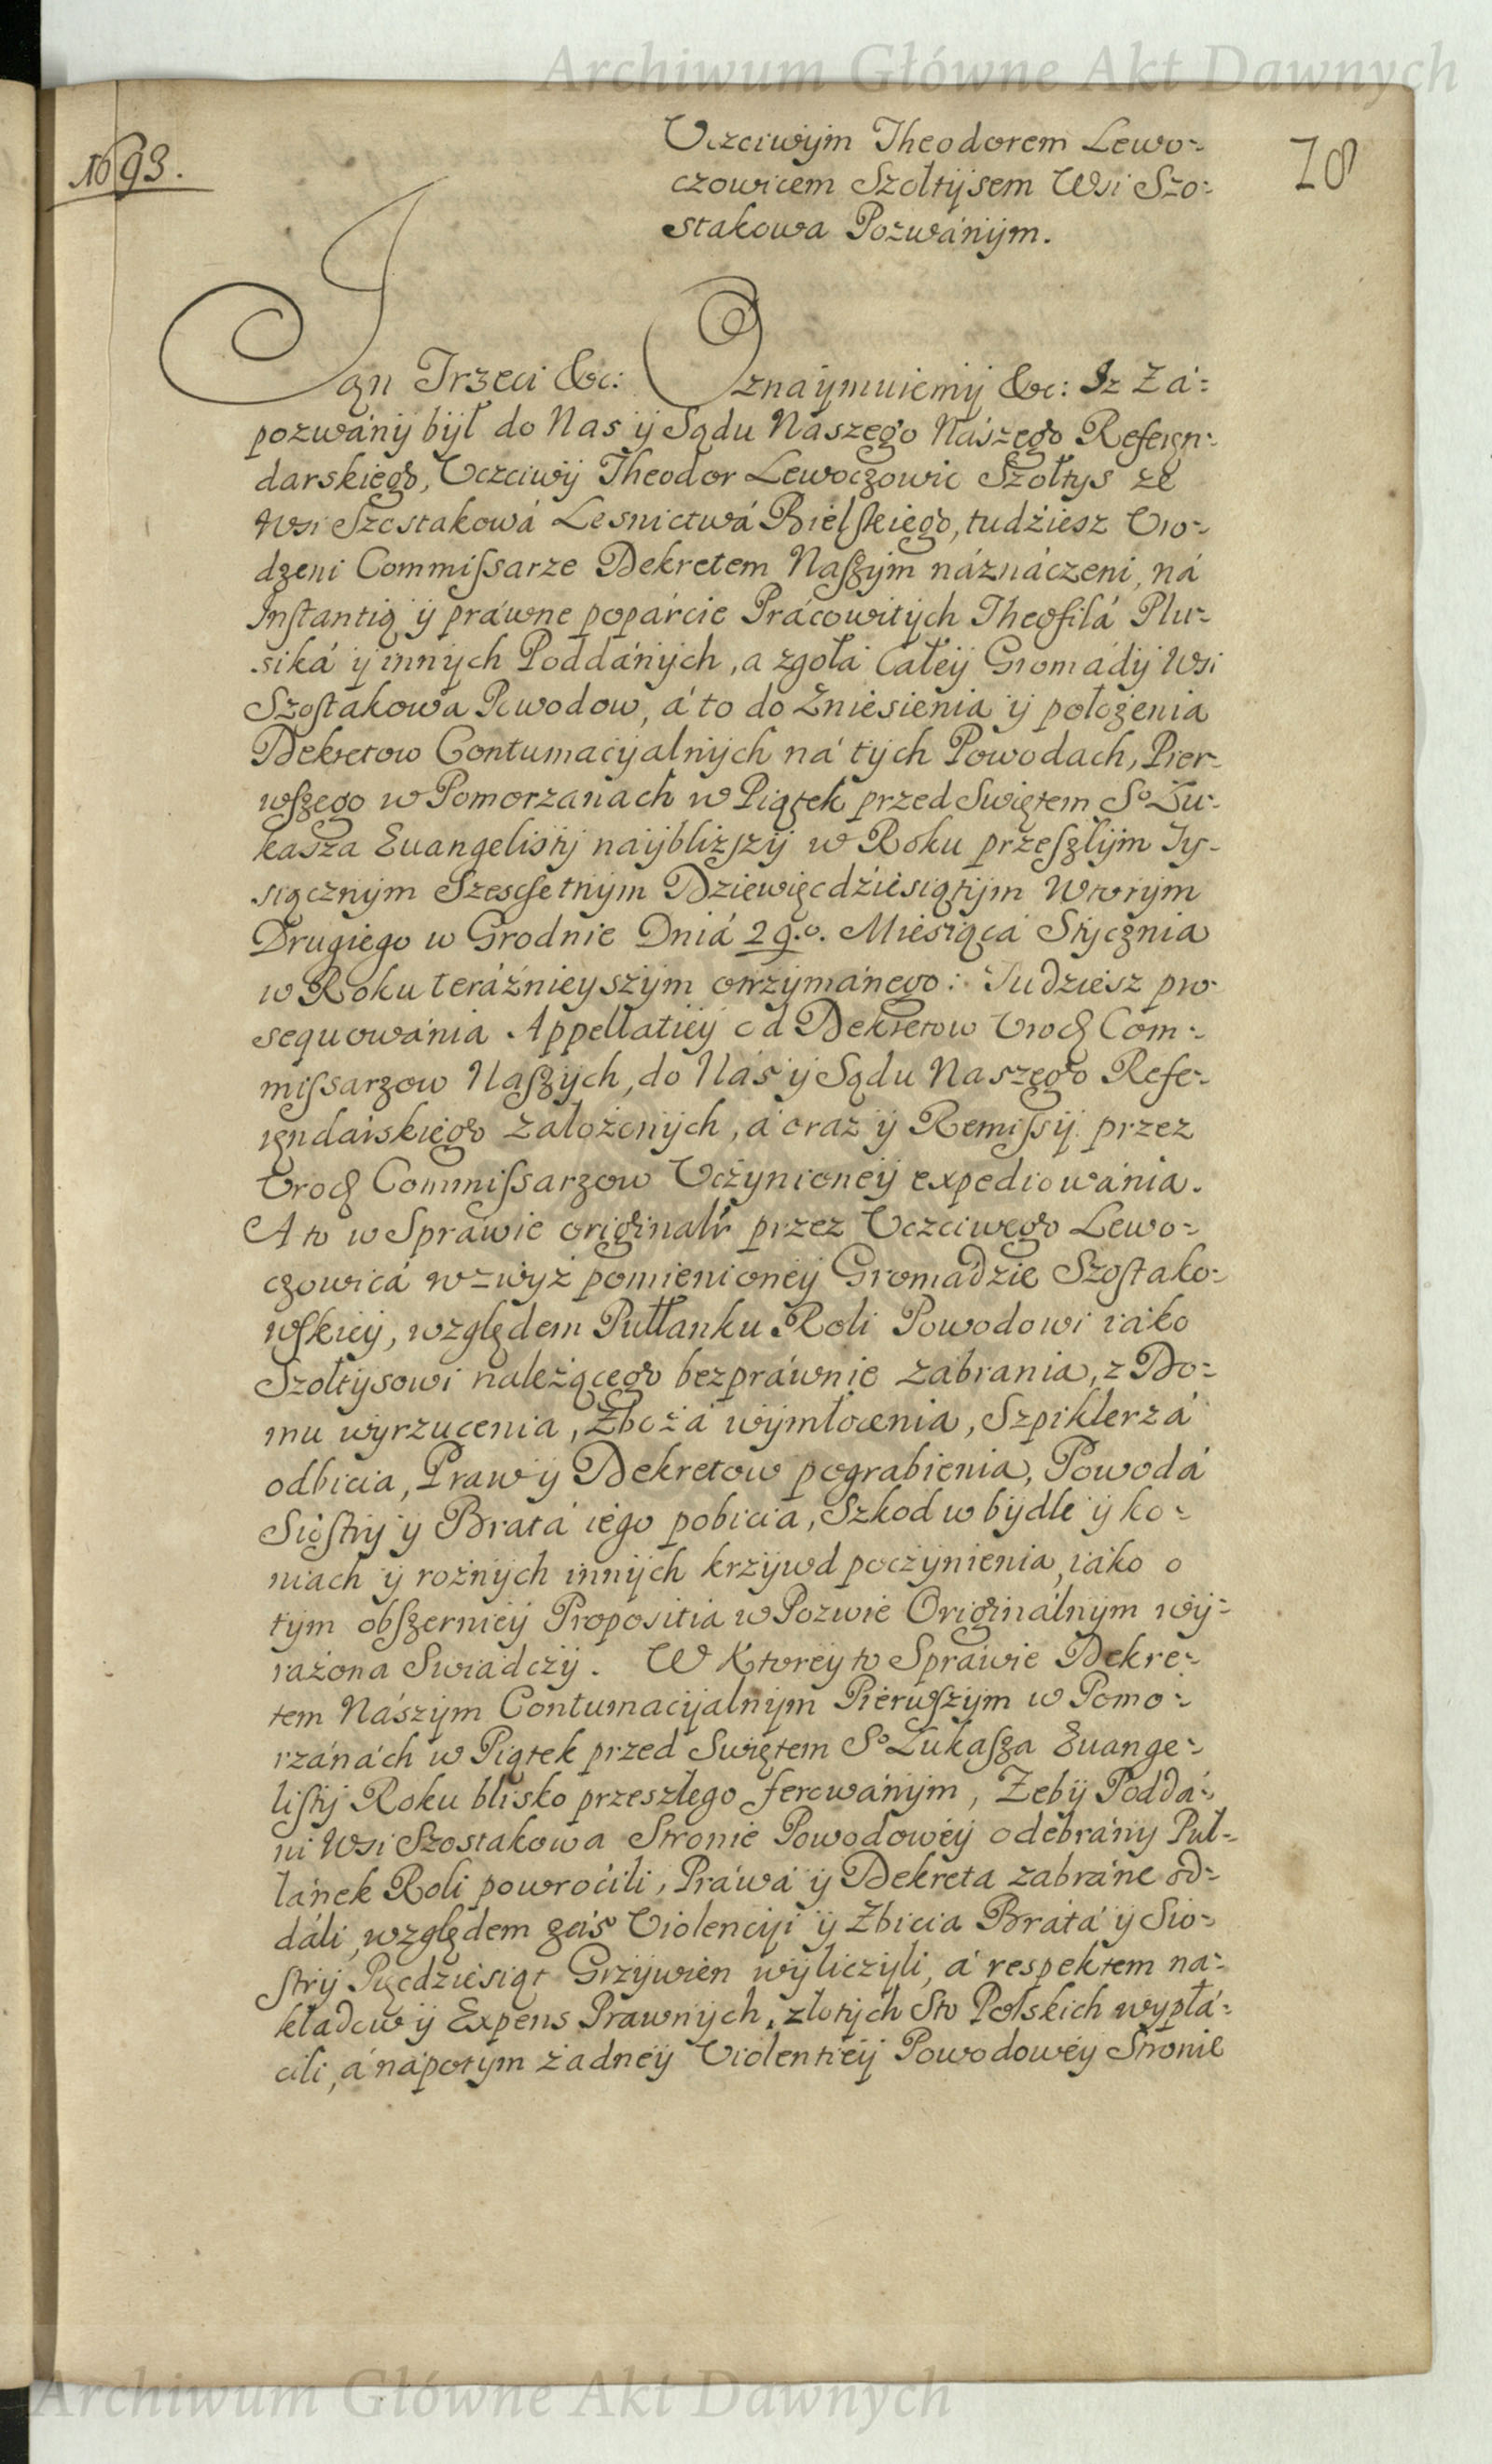 Archiwum Główne Akt Dawnych
1693.
78
Uczciwÿm Theodorem Lewo-
czowicem Szołtÿsem Wsi Szo-
stakowa Pozwánÿm.
Jan Trzeci &c: Oznaÿmuiemÿ &c: Iz Zá-
pozwánÿ bÿł do Nas ÿ Sądu Nászego Nászego Referęn-
darskiego, Uczciwÿ Theodor Lewoczowic Szołtys ze
Wsi Szostakowá Lesnictwá Bielskiego, tudźiesz Uro-
dzeni Commissarze Dekretem Naszÿm náznáczeni, ná
Instantią ÿ práwne popárcie Prácowitÿch Theofilá Plu-
siká ÿ innÿch Poddánÿch, a zgołá Całeÿ Gromádÿ Wsi
Szostakowa Powodow, á to do Zniesienia ÿ położenia
Dekretow Contumacÿalnÿch ná tÿch Powodach, Pier-
wszego w Pomorzanach w Piątek przed Swiętem So Łu-
kasza Euangelistÿ naÿbliższÿ w Roku przeszlÿm Ty-
siącznÿm Szescsetnÿm Dziewięcdźiesiątÿm Wtorÿm
Drugiego w Grodnie Dniá 29.o. Miesiącá Stÿcznia
w Roku teráźnieyszÿm otrzÿmánego: Tudziesz pro-
sequowánia Appellatiey od Dekretow Uroch Com-
missarzow Naszÿch, do Nás ÿ Sądu Naszego Refe-
ręndarskiego założonÿch, á oraz ÿ Remissÿ przez
Uroch Commissarzow Uczÿnioneÿ expediowánia.
A to w Sprawie originalr przez Uczciwego Lewo-
czowicá wzwyż pomienioneÿ Gromádzie Szostako-
wskieÿ, względem Pułłanku Roli Powodowi iáko
Szołtÿsowi należącego bezpráwnie zábrania, z Do-
mu wyrzucenia, Zbożá wÿmłocenia, Szpiklerzá
odbicia, Praw ÿ Dekretow pográbienia, Powodá
Siostrÿ ÿ Bratá iego pobicia, Szkod w bÿdle ÿ ko-
niach ÿ rożnÿch innÿch krzÿwd poczÿnienia, iáko o
tÿm obszernieÿ Propositia w Pozwie Originálnÿm wÿ-
rażona Swiádczÿ. W Ktoreÿ to Spráwie Dekre-
tem Nászÿm Contumacÿalnÿm Pierwszÿm w Pomo-
rzánách w Piątek przed Swiętem So Łukasza Euange-
listÿ Roku blisko przeszłego ferowánÿm, Zebÿ Poddá-
ni Wsi Szostakowa Stronie Powodoweÿ odebránÿ Puł-
łánek Roli powroćili, Práwá ÿ Dekreta zabráne od-
dáli, względem záś Violencÿi ÿ Zbicia Brátá ÿ Sio-
strÿ Pięcdziesiąt Grzÿwien wÿliczÿli, á respektem na-
kładow ÿ Expens Prawnÿch, złotÿch Sto Polskich wypłá-
cili, á nápotÿm żadneÿ Violentieÿ Powodoweÿ Stronie
Archiwum Główne Akt Dawnych